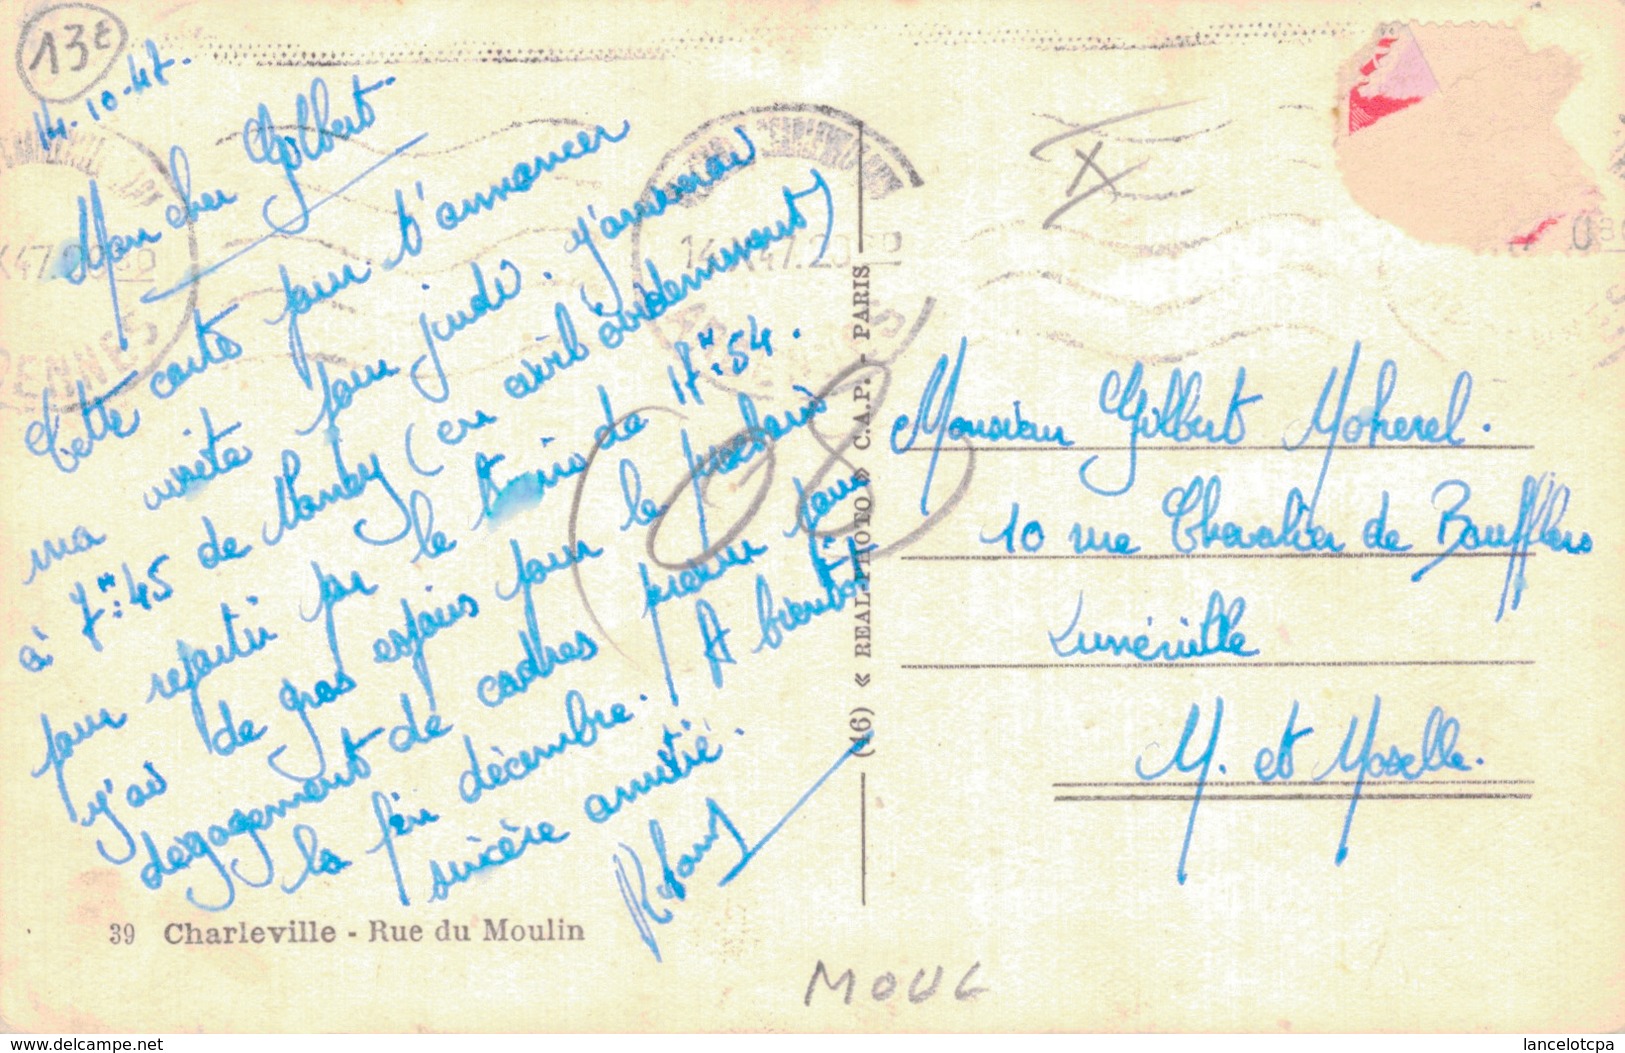 13€
14-10-47.
Mon cher Gilbert
Cette carte pour t'annoncer
ma visite pour jeudi. J'arriverai
à 7H:45 de Nancy (en civil évidemment)
pour repartir par le train de 17H:54.
J'ai de gros espoirs pour le prochain
dégagement de cadres prévu pour
la fin décembre. A bientôt
sincère amitié.
39 Charleville - Rue du Moulin
(46) « REAL-PHOTO » C.A.P. - PARIS
14 X 47.20
08
Monsieur Gilbert Moherel.
10 rue Chevalier de Boufflers
Lunéville
M. et Moselle.
MOUL
www.delcampe.net
lancelotcpa